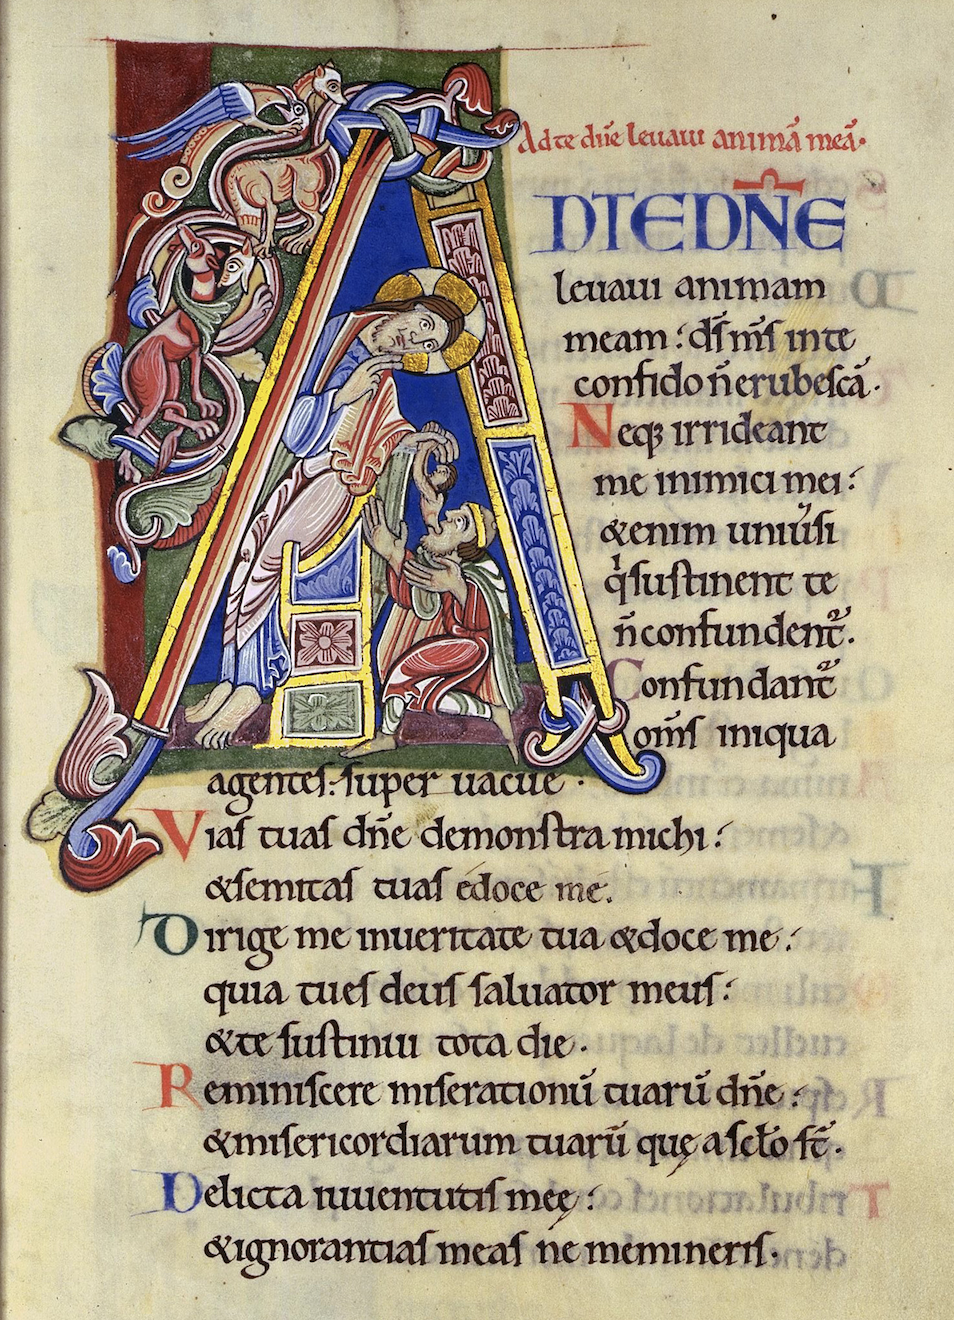 Ad te dn̄e leuaui animā meā.
ADTEDN̄E
leuaui animam
meam : dſ̄ mſ̄ in te
confido n̄ erubeſcā.
Neq; irrideant
me inimici mei :
&enim uniuſi
q̇ſuſtinent te
n̄ confundent᷑.
Confundant᷑
om̄ſ iniqua
agenteſ : ſuper uacue .
Viaſ tuaſ dn̄e demonſtra michi :
&ſemitaſ tuaſ edoce me.
Dirige me inueritate tua &doce me :
quia tueſ deuſ ſaluator meuſ :
&te ſuſtinui tota die .
Reminiſcere miſerationū tuarū dn̄e :
&miſericordiarum tuarū quę aſct̄o ſt̄ .
Delicta iuuentutiſ meę :
&ignorantiaſ meaſ ne memineriſ .